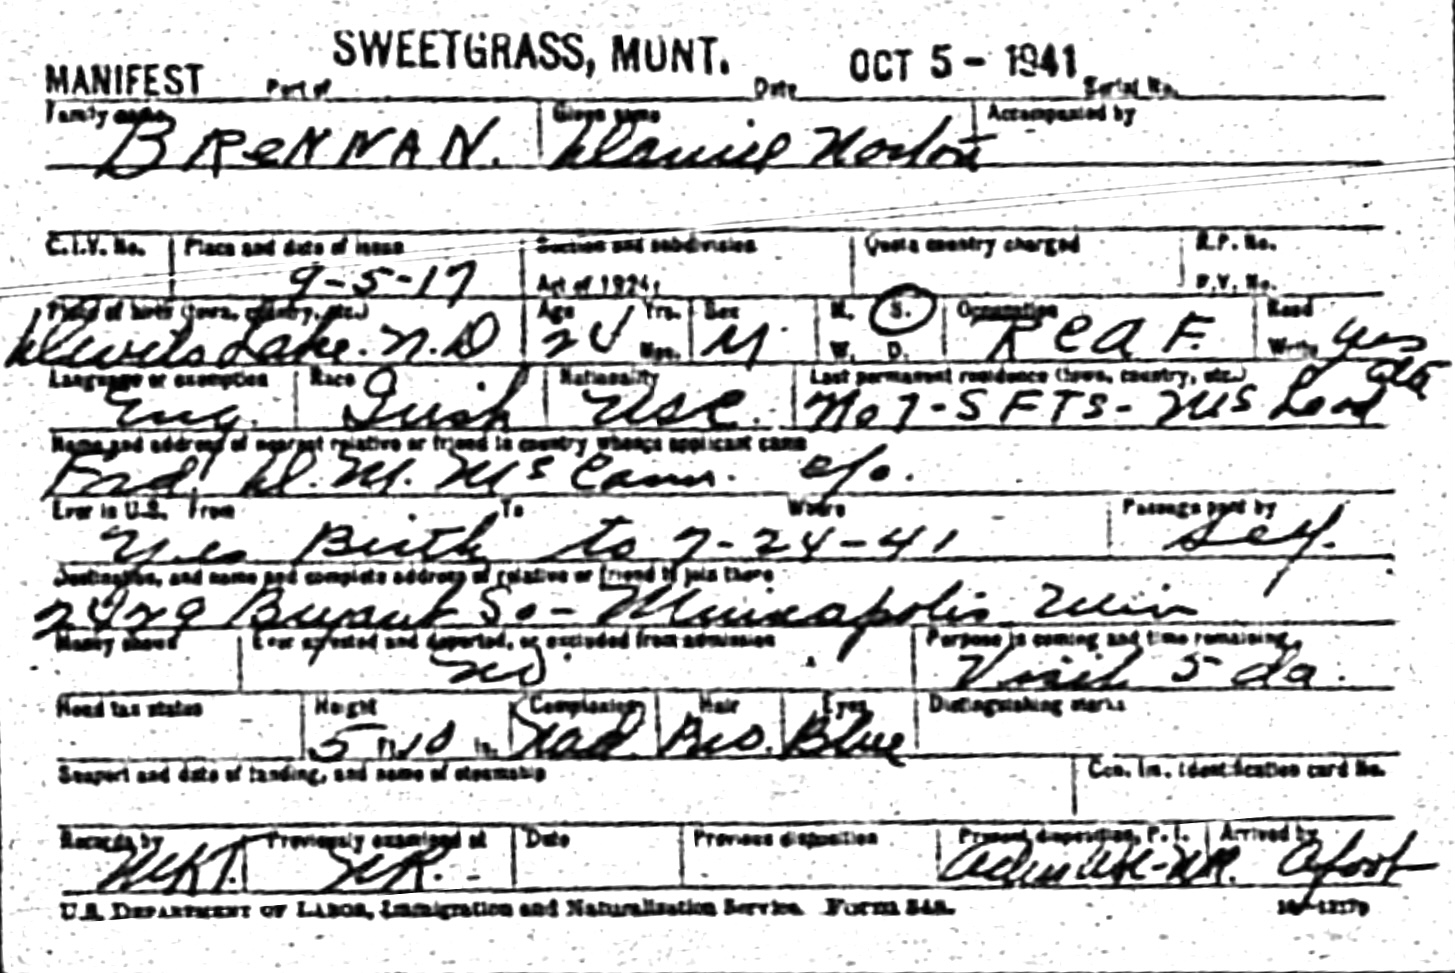 SWEETGRASS, MONT. OCT 5 - 1941
MANIFEST Port of Date Serial No.
Family name Given name Accompanied by
BReNNAN. Daniel Norton
C.I.V. No. Place and date of issue Section and subdivision Quota country charged R.P. No.
9-5-17 Act of 1924: P.V. No.
Place of birth (town, country, etc.) Age Yrs. Sex M. S. Occupation Read
Devils Lake. N.D 24 Mos. M. W. D. RCAF. Write yes
Language or exemption Race Nationality Last permanent residence (town, country, etc.)
Eng. Irish USC. No 7-SFTS- McLeod Alta
Name and address of nearest relative or friend in country whence applicant came
Frd, D. M. McCann. c/o.
Ever in U.S. From To Where Passage paid by
Yes Birth to 7-24-41 Self.
Destination, and name and complete address of relative or friend to join there
2429 Bryant So- Minneapolis Minn
Money shown Ever arrested and deported, or excluded from admission Purpose in coming and time remaining
no Visit 5 da.
Head tax status Height Complexion Hair Eyes Distinguishing marks
5 ft. 10 in. Bro. Blue
Seaport and date of landing, and name of steamship Can. Im. Identification card No.
Records by Previously examined at Date Previous disposition Present disposition, P.I. Arrived by
NR. afoot
U.S. DEPARTMENT OF LABOR, Immigration and Naturalization Service. Form 548.